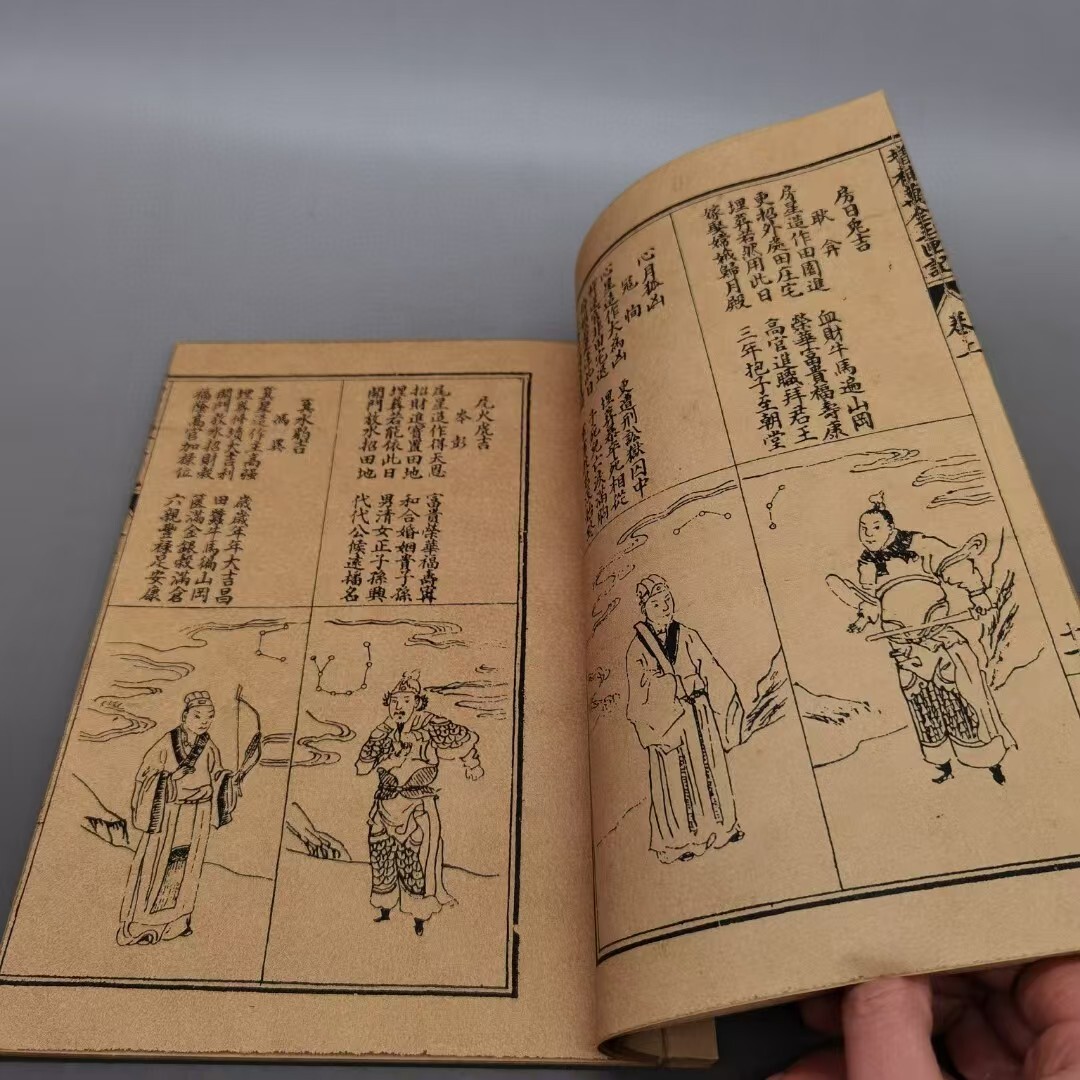 增補萬全玉匣記
卷上
房日兔吉
耿弇
房星造作田園進
血財牛馬遍山岡
更招外處田庄宅
榮華富貴福壽康
埋葬若然用此日
高官進職拜君王
嫁娶嫦娥歸月殿
三年抱子至朝堂
心月狐凶
寇恂
心星造作大為凶
更遭刑訟獄囚中
埋葬暴卒死相從
尾火虎吉
岑彭
尾星造作得天恩
富貴榮華福壽寧
招財進寶置田地
和合婚姻貴子孫
埋葬若能依此日
男清女正子孫興
開門放水招田地
代代公候遠播名
箕水豹吉
馮異
箕星造作主高強
歲歲年年大吉昌
埋葬修墳大吉利
田蠶牛馬遍山岡
開門放水招財穀
篋滿金銀穀滿倉
福蔭高官加祿位
六親豐祿足安康